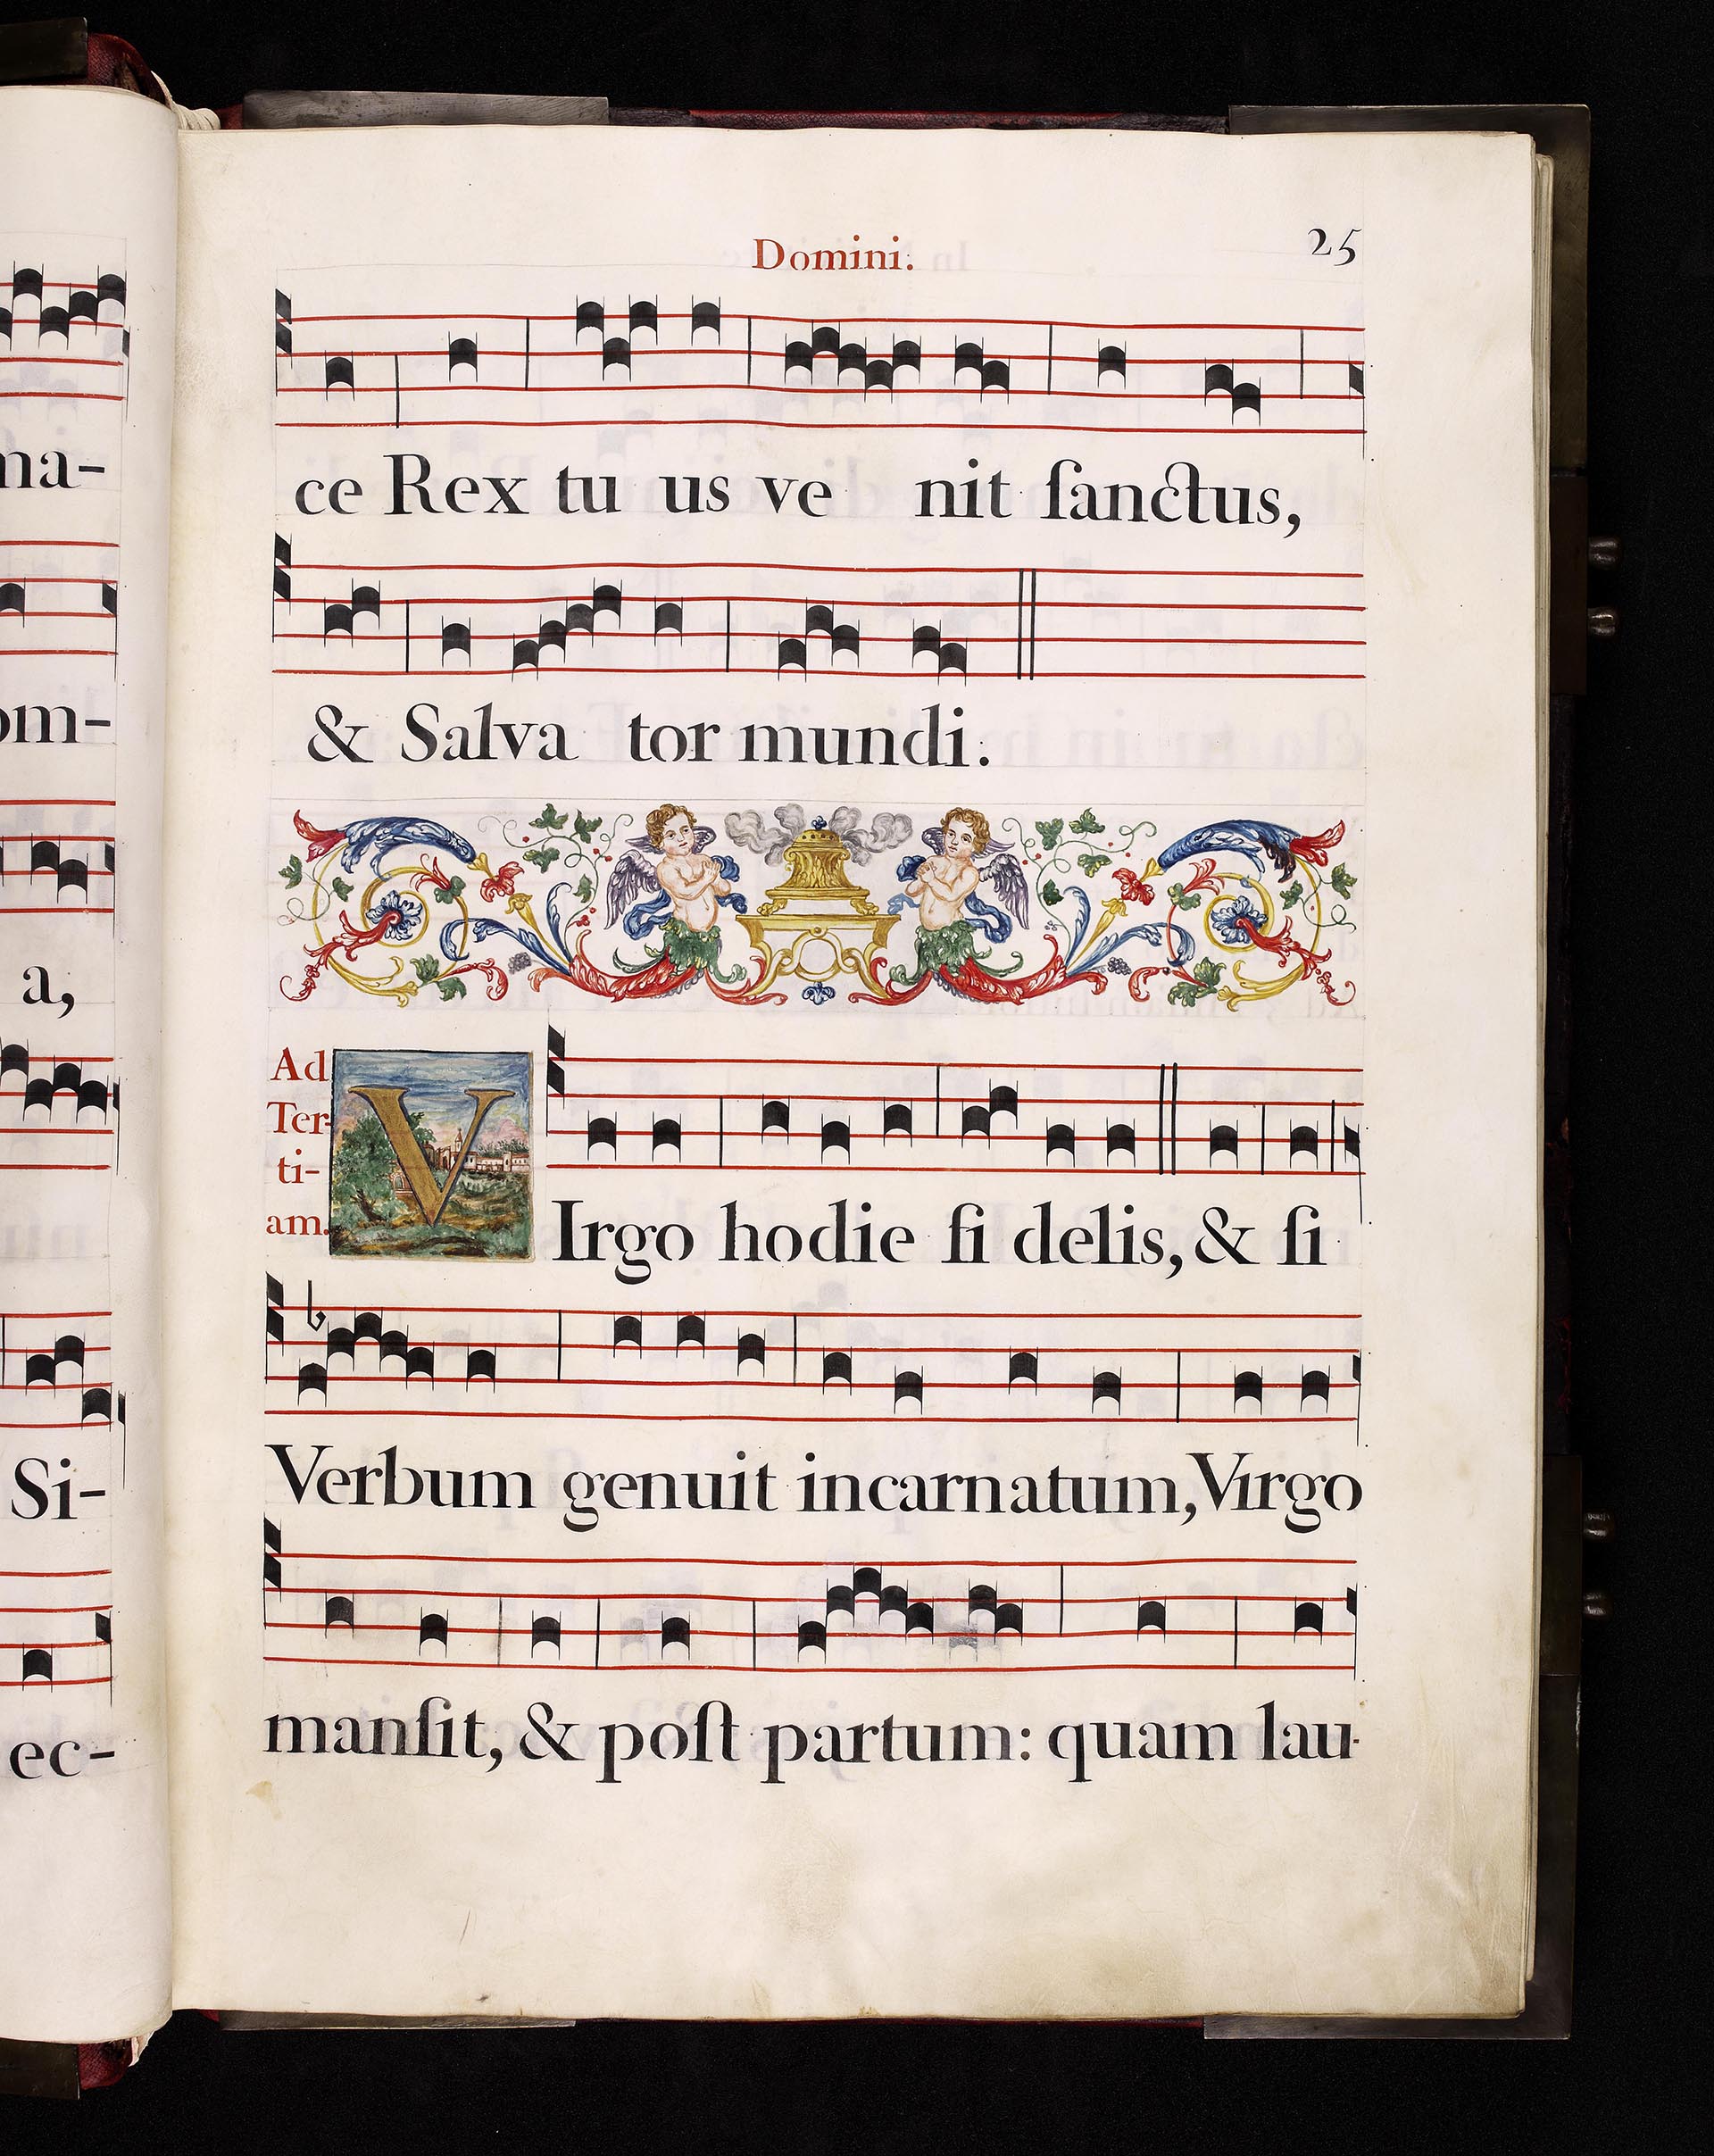 na-
om-
a,
Si-
ec-
Domini.
25
ce Rex tu us ve nit ſanctus,
& Salva tor mundi.
Ad
Ter-
ti-
am.
VIrgo hodie fi delis, & ſi
Verbum genuit incarnatum, Virgo
manſit, & poſt partum: quam lau-